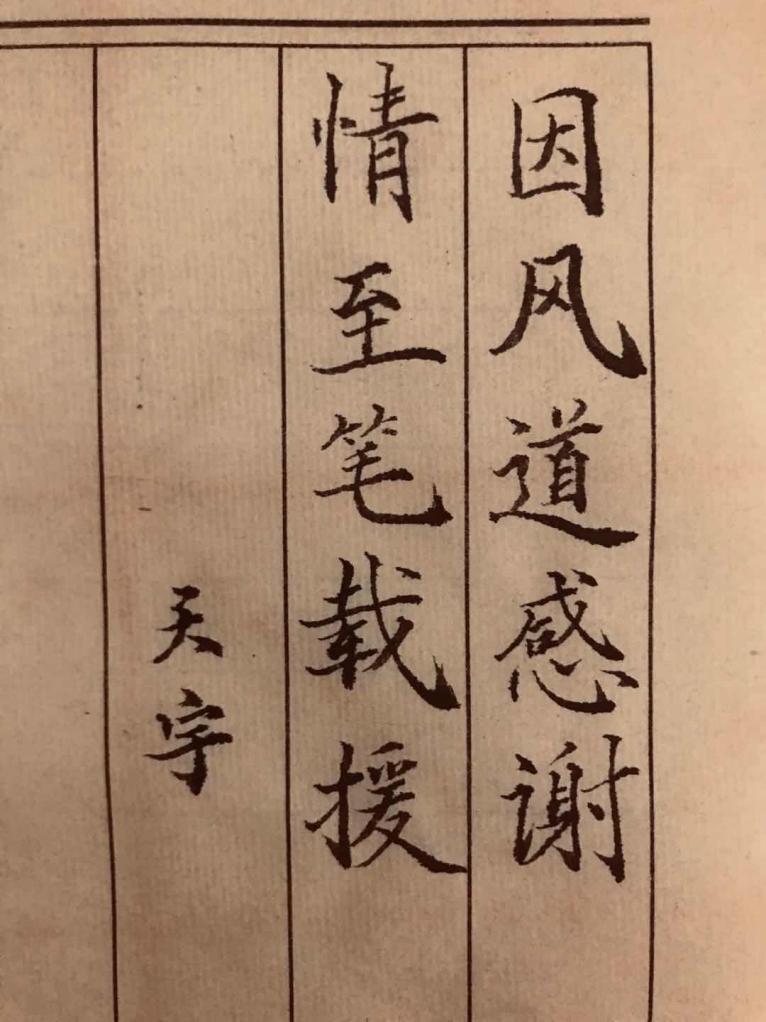 因风道感谢
情至笔载援
天宇